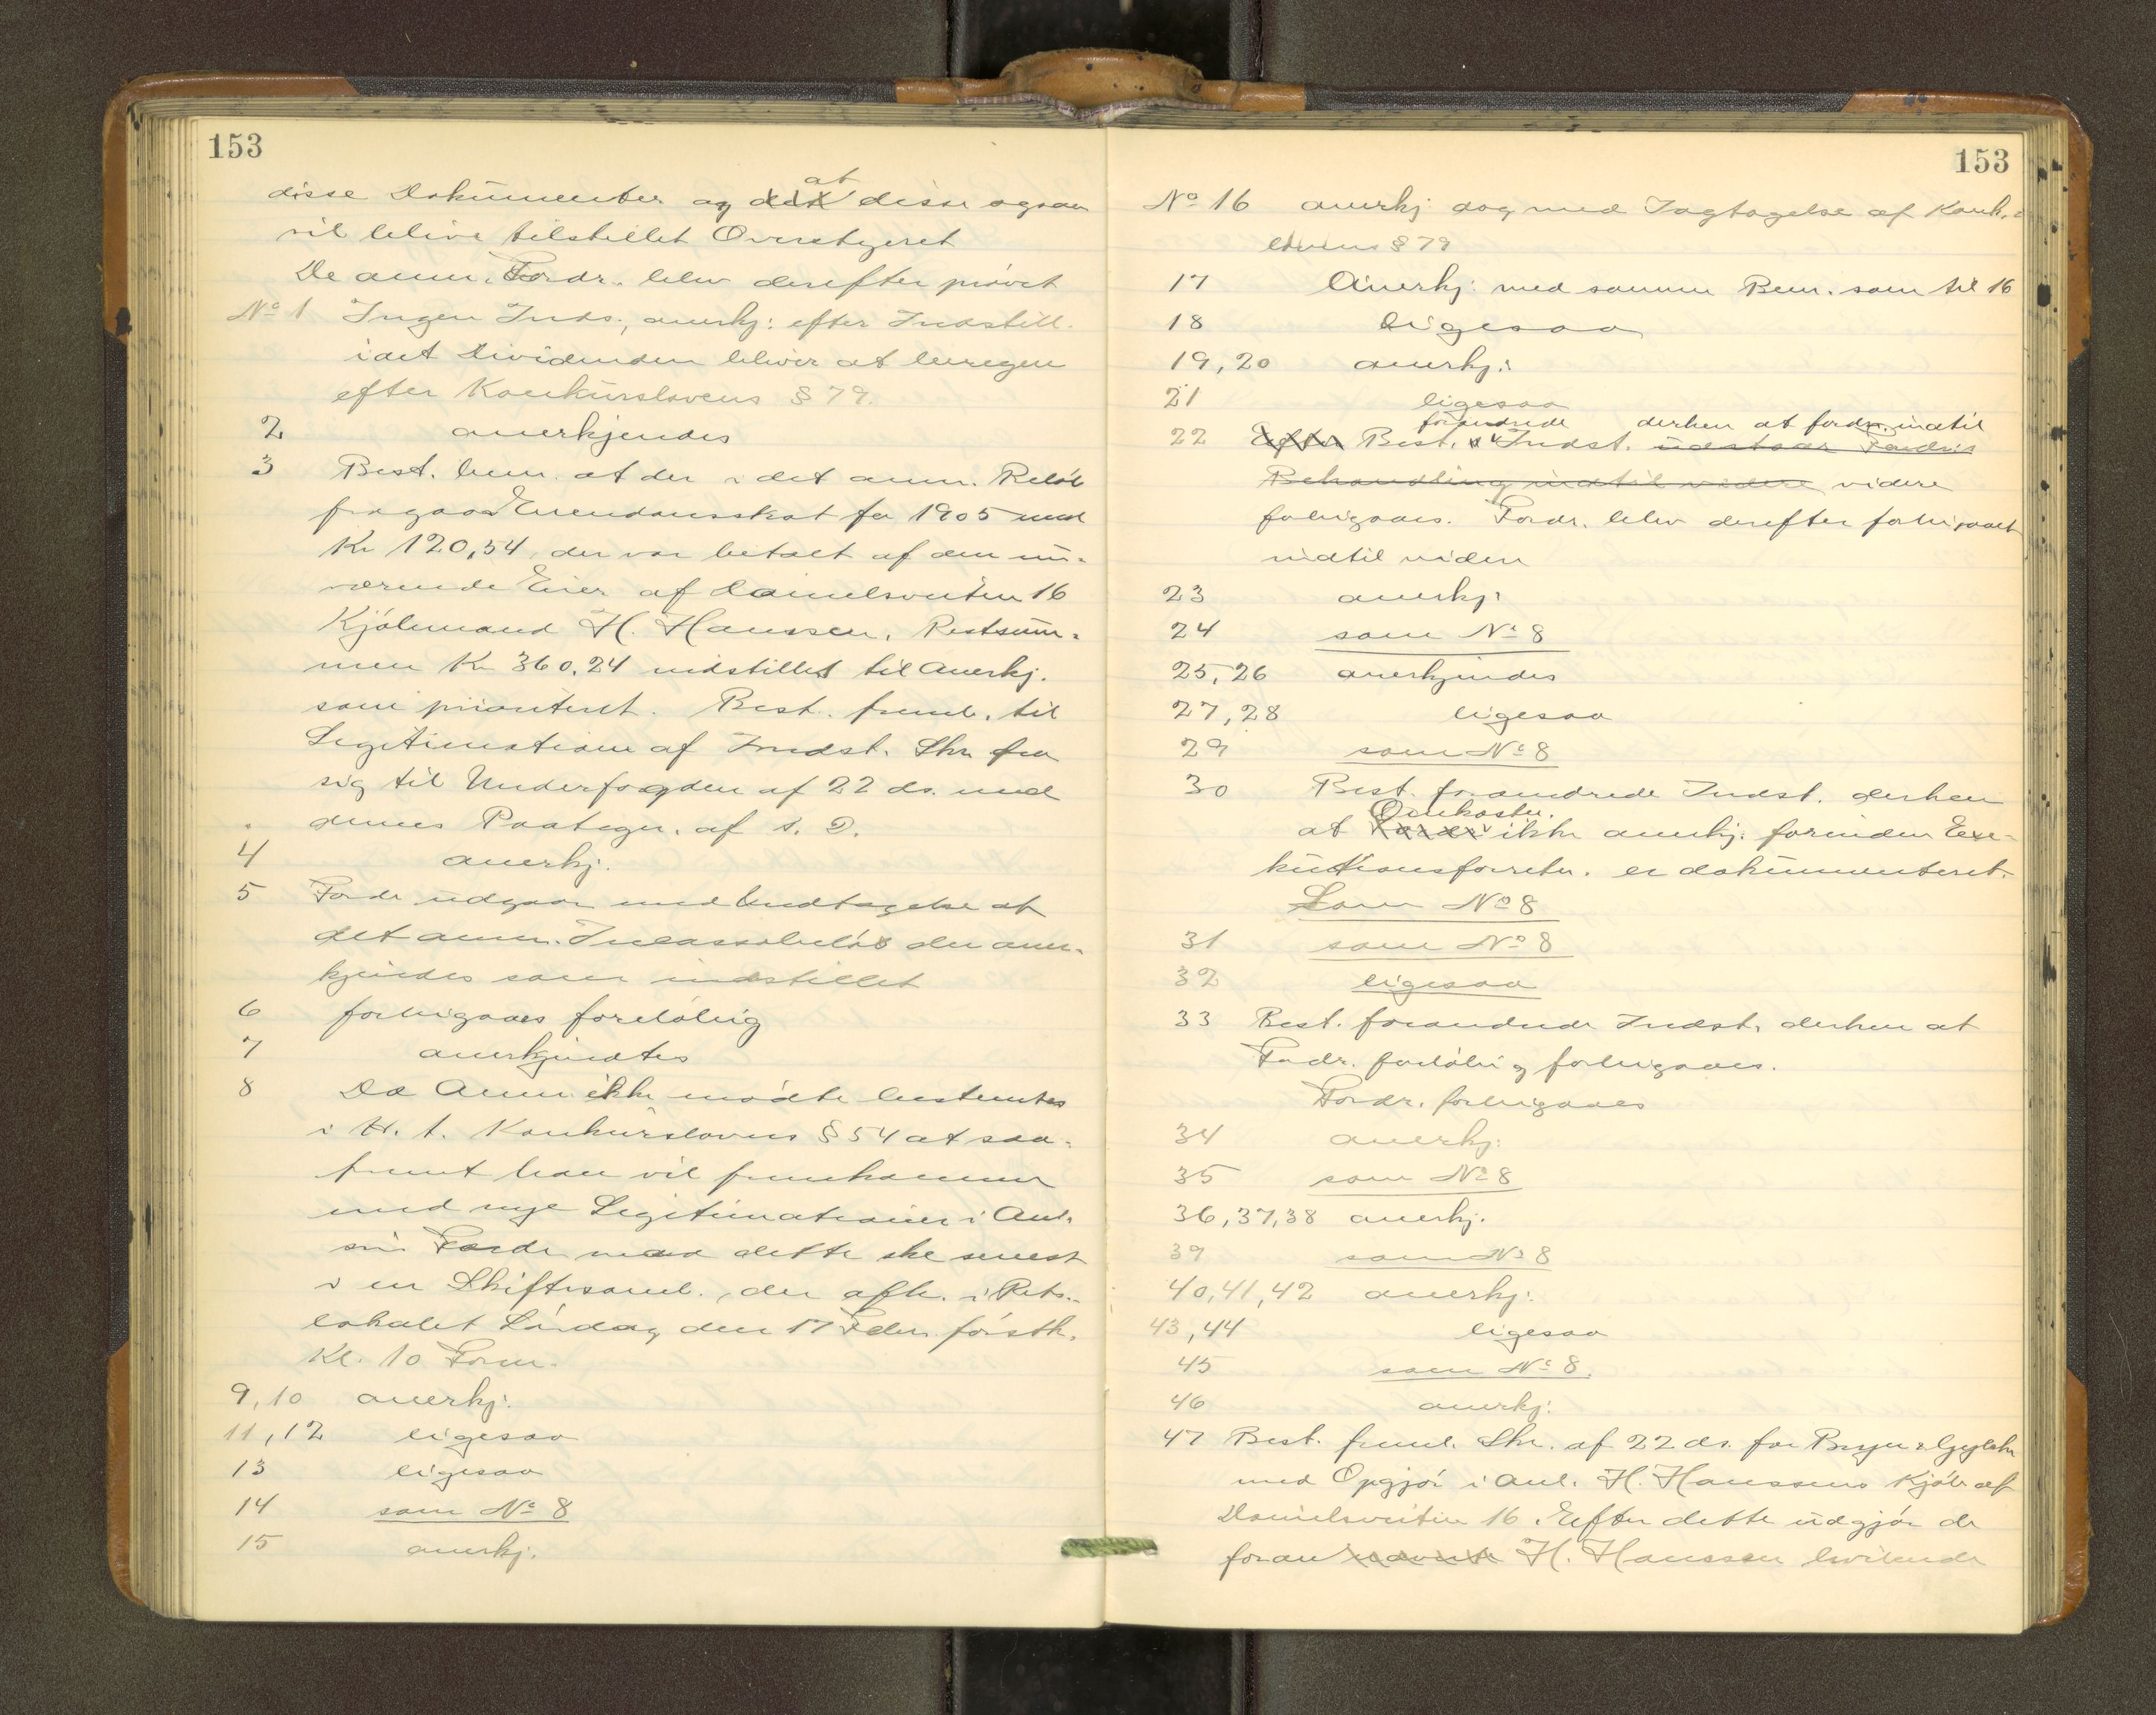 153
disse Dokumenter og at disse ogsaa
vil blive tilstillet Overstyret
De anm. Fordr. blev derefter prövet
No 1 Ingen Inds., anerkj: efter Indstill.
idet Dividenden bliver at beregne
efter Konkurslovens § 79.
2 anerkjendes
3 Best. bem. at der i det anm. Belöb
fragaar Eiendomsskat for 1905 med
Kr 120,54, der var betalt af den nu-
værende Eier af Damelsveiten 16
Kjöbmand H. Hanssen, Restsum-
men Kr 360,24 indstilles til Anerkj.
som prioriteret. Best. freml. til
Legitimation af Indst. Skr. fra
sig til Underfogden af 22 ds. med
dennes Paategn. af s. D.
4 anerkj.
5 Fordr udgaar med Undtagelse af
det anm. Incassobelöb der aner-
kjendes som indstillet
6 forbigaaes forelöbig
7 anerkjendtes
8 Da Anm. ikke mödte bestemtes
i H. t. Konkurslovens § 54 at saa-
fremt han vil fremkomme
med nye Legitimationer i Anl.
sin Fordr maa dette ske senest
i en Skiftesaml., der afh. i Rets-
lokalet Lördag den 17 Febr. förstk.
Kl. 10 Form.
9,10 anerkj:
11,12 ligesaa
13 ligesaa
14 som No 8
15 anerkj.
153
No 16 anerkj: dog med Iagtagelse af Konk.-
lovens § 79
17 Anerkj: med samme Bem. som til 16
18 ligesaa
19,20 anerkj:
21 ligesaa
22 Best. forandrede Indst. derhen at fordr. indtil
udstaar Fordr's
Behandling indtil videre videre
forbigaaes. Fordr. blev derefter forbigaaet
indtil videre
23 anerkj:
24 som No 8
25,26 anerkjendes
27,28 ligesaa
29 som No 8
30 Best. forandrede Indst. derhen
at Omkostn. ikke anerkj: forinden Exe-
kutionsforretn. er dokumenteret.
Som No 8
31 som No 8
32 ligesaa
33 Best. forandrede Indst. derhen at
Fordr. forlöbig forbigaaes.
Fordr. forbigaaes
34 anerkj:
35 som No 8
36,37,38 anerkj.
39 som No 8
40,41,42 anerkj:
43,44 ligesaa
45 som No 8.
46 anerkj:
47 Best. freml. Skr. af 22 ds. fra
med Opgjör i Anl. H. Hanssens Kjöb af
Damelsveiten 16. Efter dette udgjör de
foran H. Hanssen hvilende